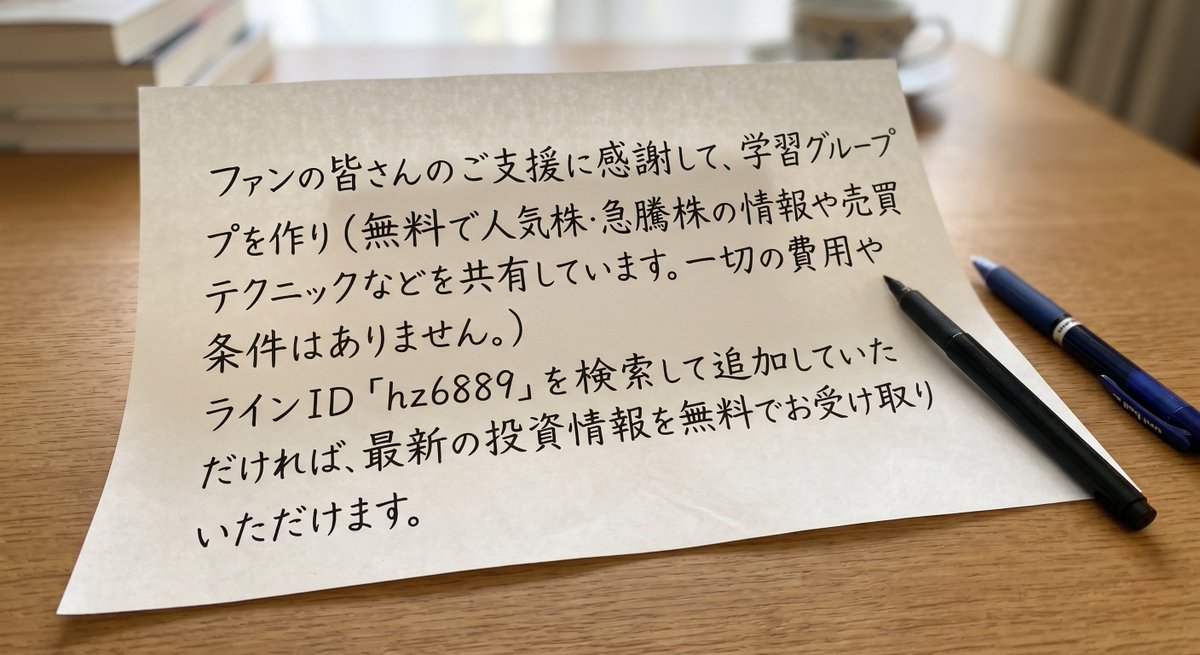 ファンの皆さんのご支援に感謝して、学習グループ
プを作り(無料で人気株·急騰株の情報や売買
テクニックなどを共有しています。一切の費用や
条件はありません。)
ラインID「hz6889」を検索して追加していた
だければ、最新の投資情報を無料でお受け取り
いただけます。